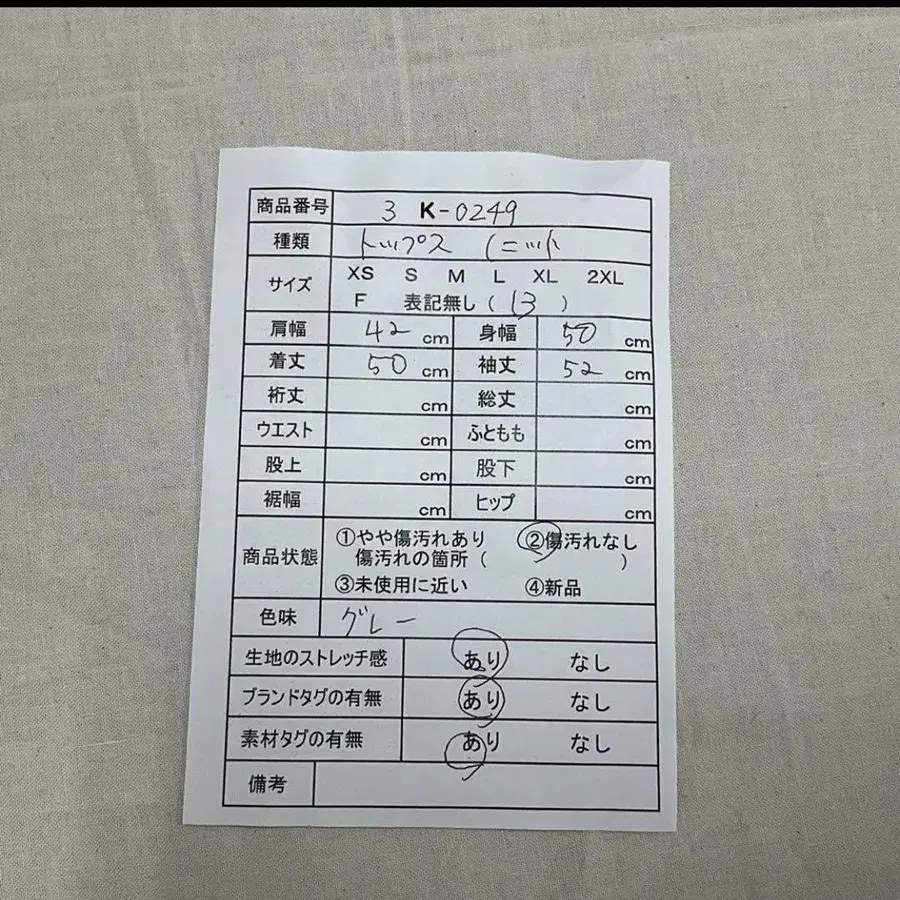 商品番号 3 K-0249
種類 トップス (ニット
サイズ XS S M L XL 2XL
F 表記無し ( 13 )
肩幅 42 cm 身幅 50 cm
着丈 50 cm 袖丈 52 cm
裄丈 cm 総丈 cm
ウエスト cm ふともも cm
股上 cm 股下 cm
裾幅 cm ヒップ cm
商品状態 ①やや傷汚れあり ②傷汚れなし
傷汚れの箇所 ( )
③未使用に近い ④新品
色味 グレー
生地のストレッチ感 あり なし
ブランドタグの有無 あり なし
素材タグの有無 あり なし
備考